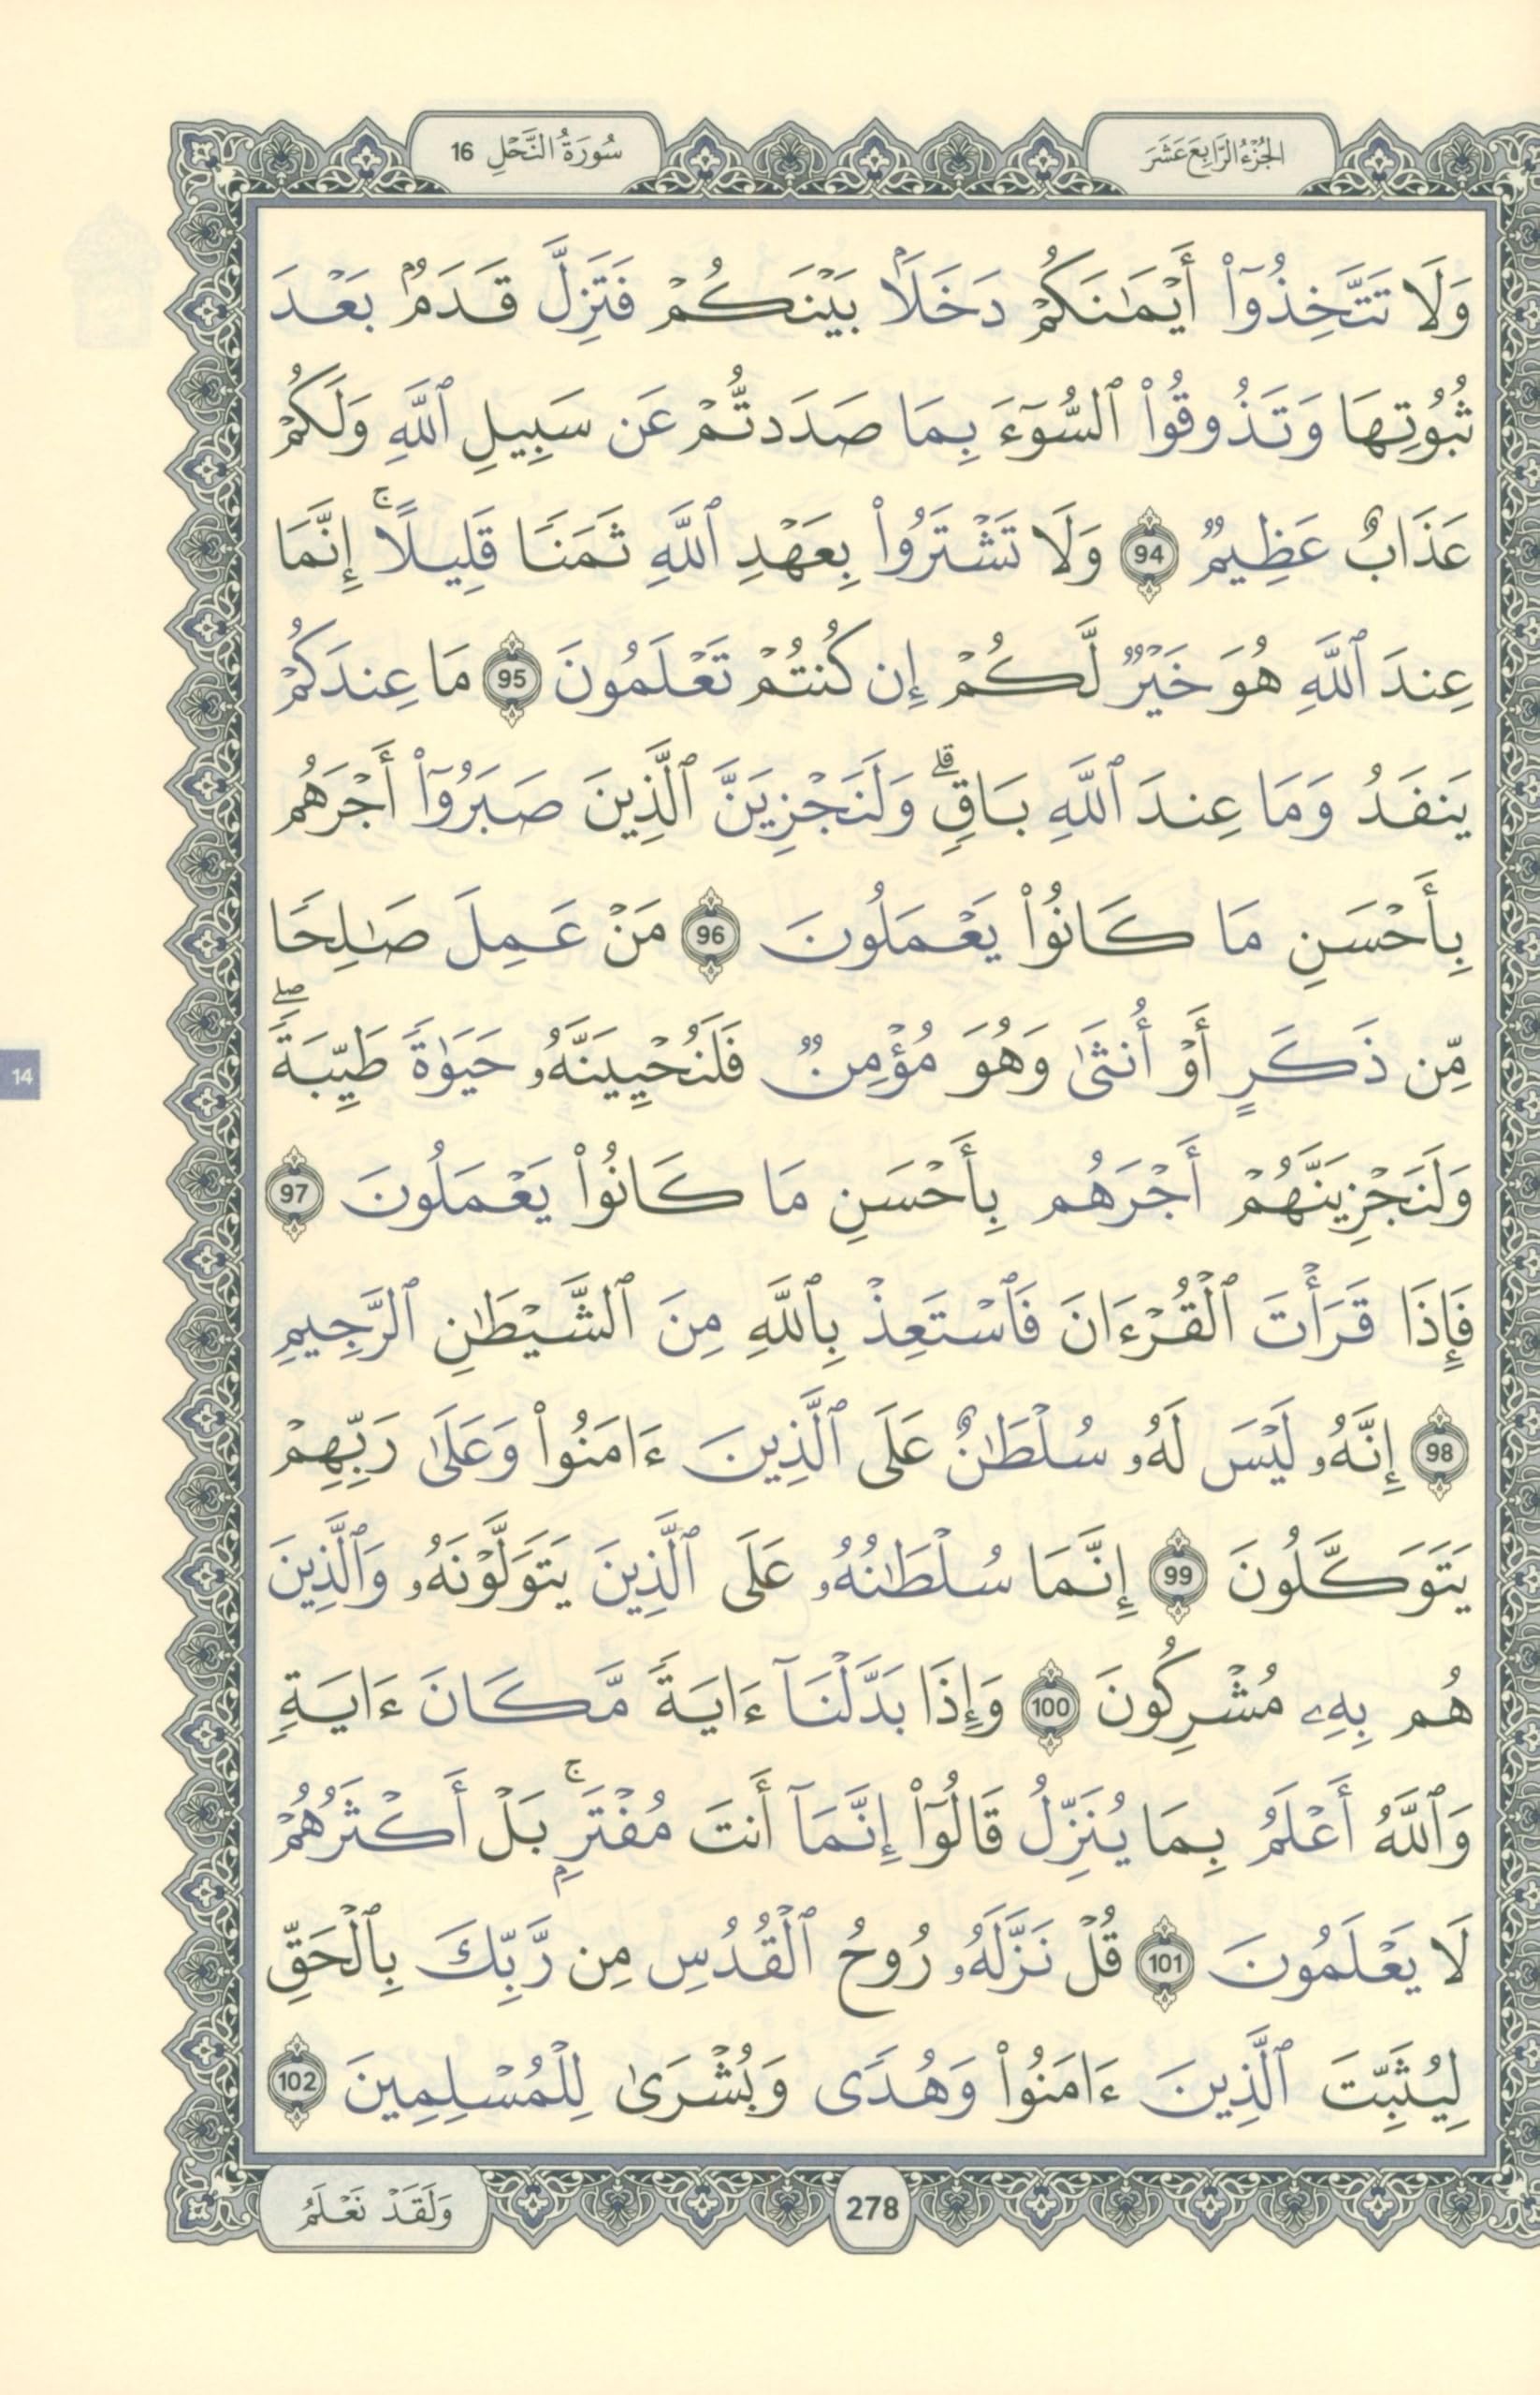 الجُزْءُ الرَّابِعَ عَشَرَ
سُورَةُ النَّحْلِ 16
وَلَا تَتَّخِذُوٓا۟ أَيْمَـٰنَكُمْ دَخَلًۢا بَيْنَكُمْ فَتَزِلَّ قَدَمٌۢ بَعْدَ
ثُبُوتِهَا وَتَذُوقُوا۟ ٱلسُّوٓءَ بِمَا صَدَدتُّمْ عَن سَبِيلِ ٱللَّهِ وَلَكُمْ
عَذَابٌ عَظِيمٌ 94 وَلَا تَشْتَرُوا۟ بِعَهْدِ ٱللَّهِ ثَمَنًا قَلِيلًا ۚ إِنَّمَا
عِندَ ٱللَّهِ هُوَ خَيْرٌ لَّكُمْ إِن كُنتُمْ تَعْلَمُونَ 95 مَا عِندَكُمْ
يَنفَدُ وَمَا عِندَ ٱللَّهِ بَاقٍ ۗ وَلَنَجْزِيَنَّ ٱلَّذِينَ صَبَرُوٓا۟ أَجْرَهُم
بِأَحْسَنِ مَا كَانُوا۟ يَعْمَلُونَ 96 مَنْ عَمِلَ صَـٰلِحًا
مِّن ذَكَرٍ أَوْ أُنثَىٰ وَهُوَ مُؤْمِنٌ فَلَنُحْيِيَنَّهُۥ حَيَوٰةً طَيِّبَةً ۖ
وَلَنَجْزِيَنَّهُمْ أَجْرَهُم بِأَحْسَنِ مَا كَانُوا۟ يَعْمَلُونَ 97
فَإِذَا قَرَأْتَ ٱلْقُرْءَانَ فَٱسْتَعِذْ بِٱللَّهِ مِنَ ٱلشَّيْطَـٰنِ ٱلرَّجِيمِ
98 إِنَّهُۥ لَيْسَ لَهُۥ سُلْطَـٰنٌ عَلَى ٱلَّذِينَ ءَامَنُوا۟ وَعَلَىٰ رَبِّهِمْ
يَتَوَكَّلُونَ 99 إِنَّمَا سُلْطَـٰنُهُۥ عَلَى ٱلَّذِينَ يَتَوَلَّوْنَهُۥ وَٱلَّذِينَ
هُم بِهِۦ مُشْرِكُونَ 100 وَإِذَا بَدَّلْنَآ ءَايَةً مَّكَانَ ءَايَةٍ
وَٱللَّهُ أَعْلَمُ بِمَا يُنَزِّلُ قَالُوٓا۟ إِنَّمَآ أَنتَ مُفْتَرٍۭ ۚ بَلْ أَكْثَرُهُمْ
لَا يَعْلَمُونَ 101 قُلْ نَزَّلَهُۥ رُوحُ ٱلْقُدُسِ مِن رَّبِّكَ بِٱلْحَقِّ
لِيُثَبِّتَ ٱلَّذِينَ ءَامَنُوا۟ وَهُدًى وَبُشْرَىٰ لِلْمُسْلِمِينَ 102
278
وَلَقَدْ نَعْلَمُ
14